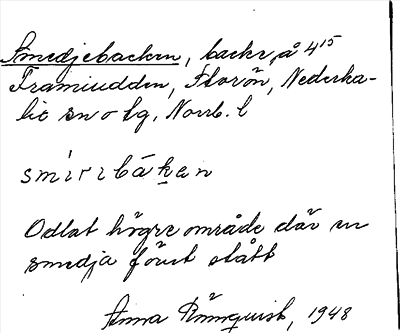 Smedjebacken, backe, å 4¹⁵
Framiudden, Storön, Nederka-
lix sn o lg, Norrb. l
smiribáken
Odlat högre område där en
smedja förut stått
Anna Rönnquist, 1948